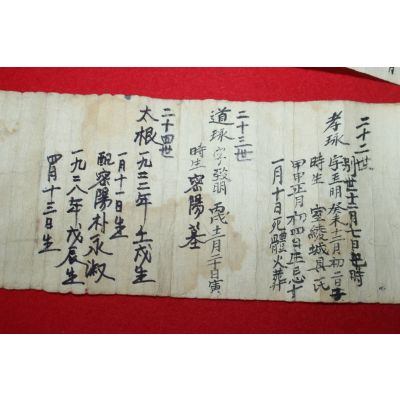 二十二世
別世十二月七日巳時
孝球 字圭明 癸未十二月初二日子
時生 室綾城具氏
甲申正月初四日生忌十
一月十日死體火葬
二十三世
道球 字致明 十二月二十日寅
時生 密陽 墓
二十四世
太根 一九二二年 壬戌生
一月十一日生
配密陽朴永淑
一九二八年 戊辰生
四月十三日生